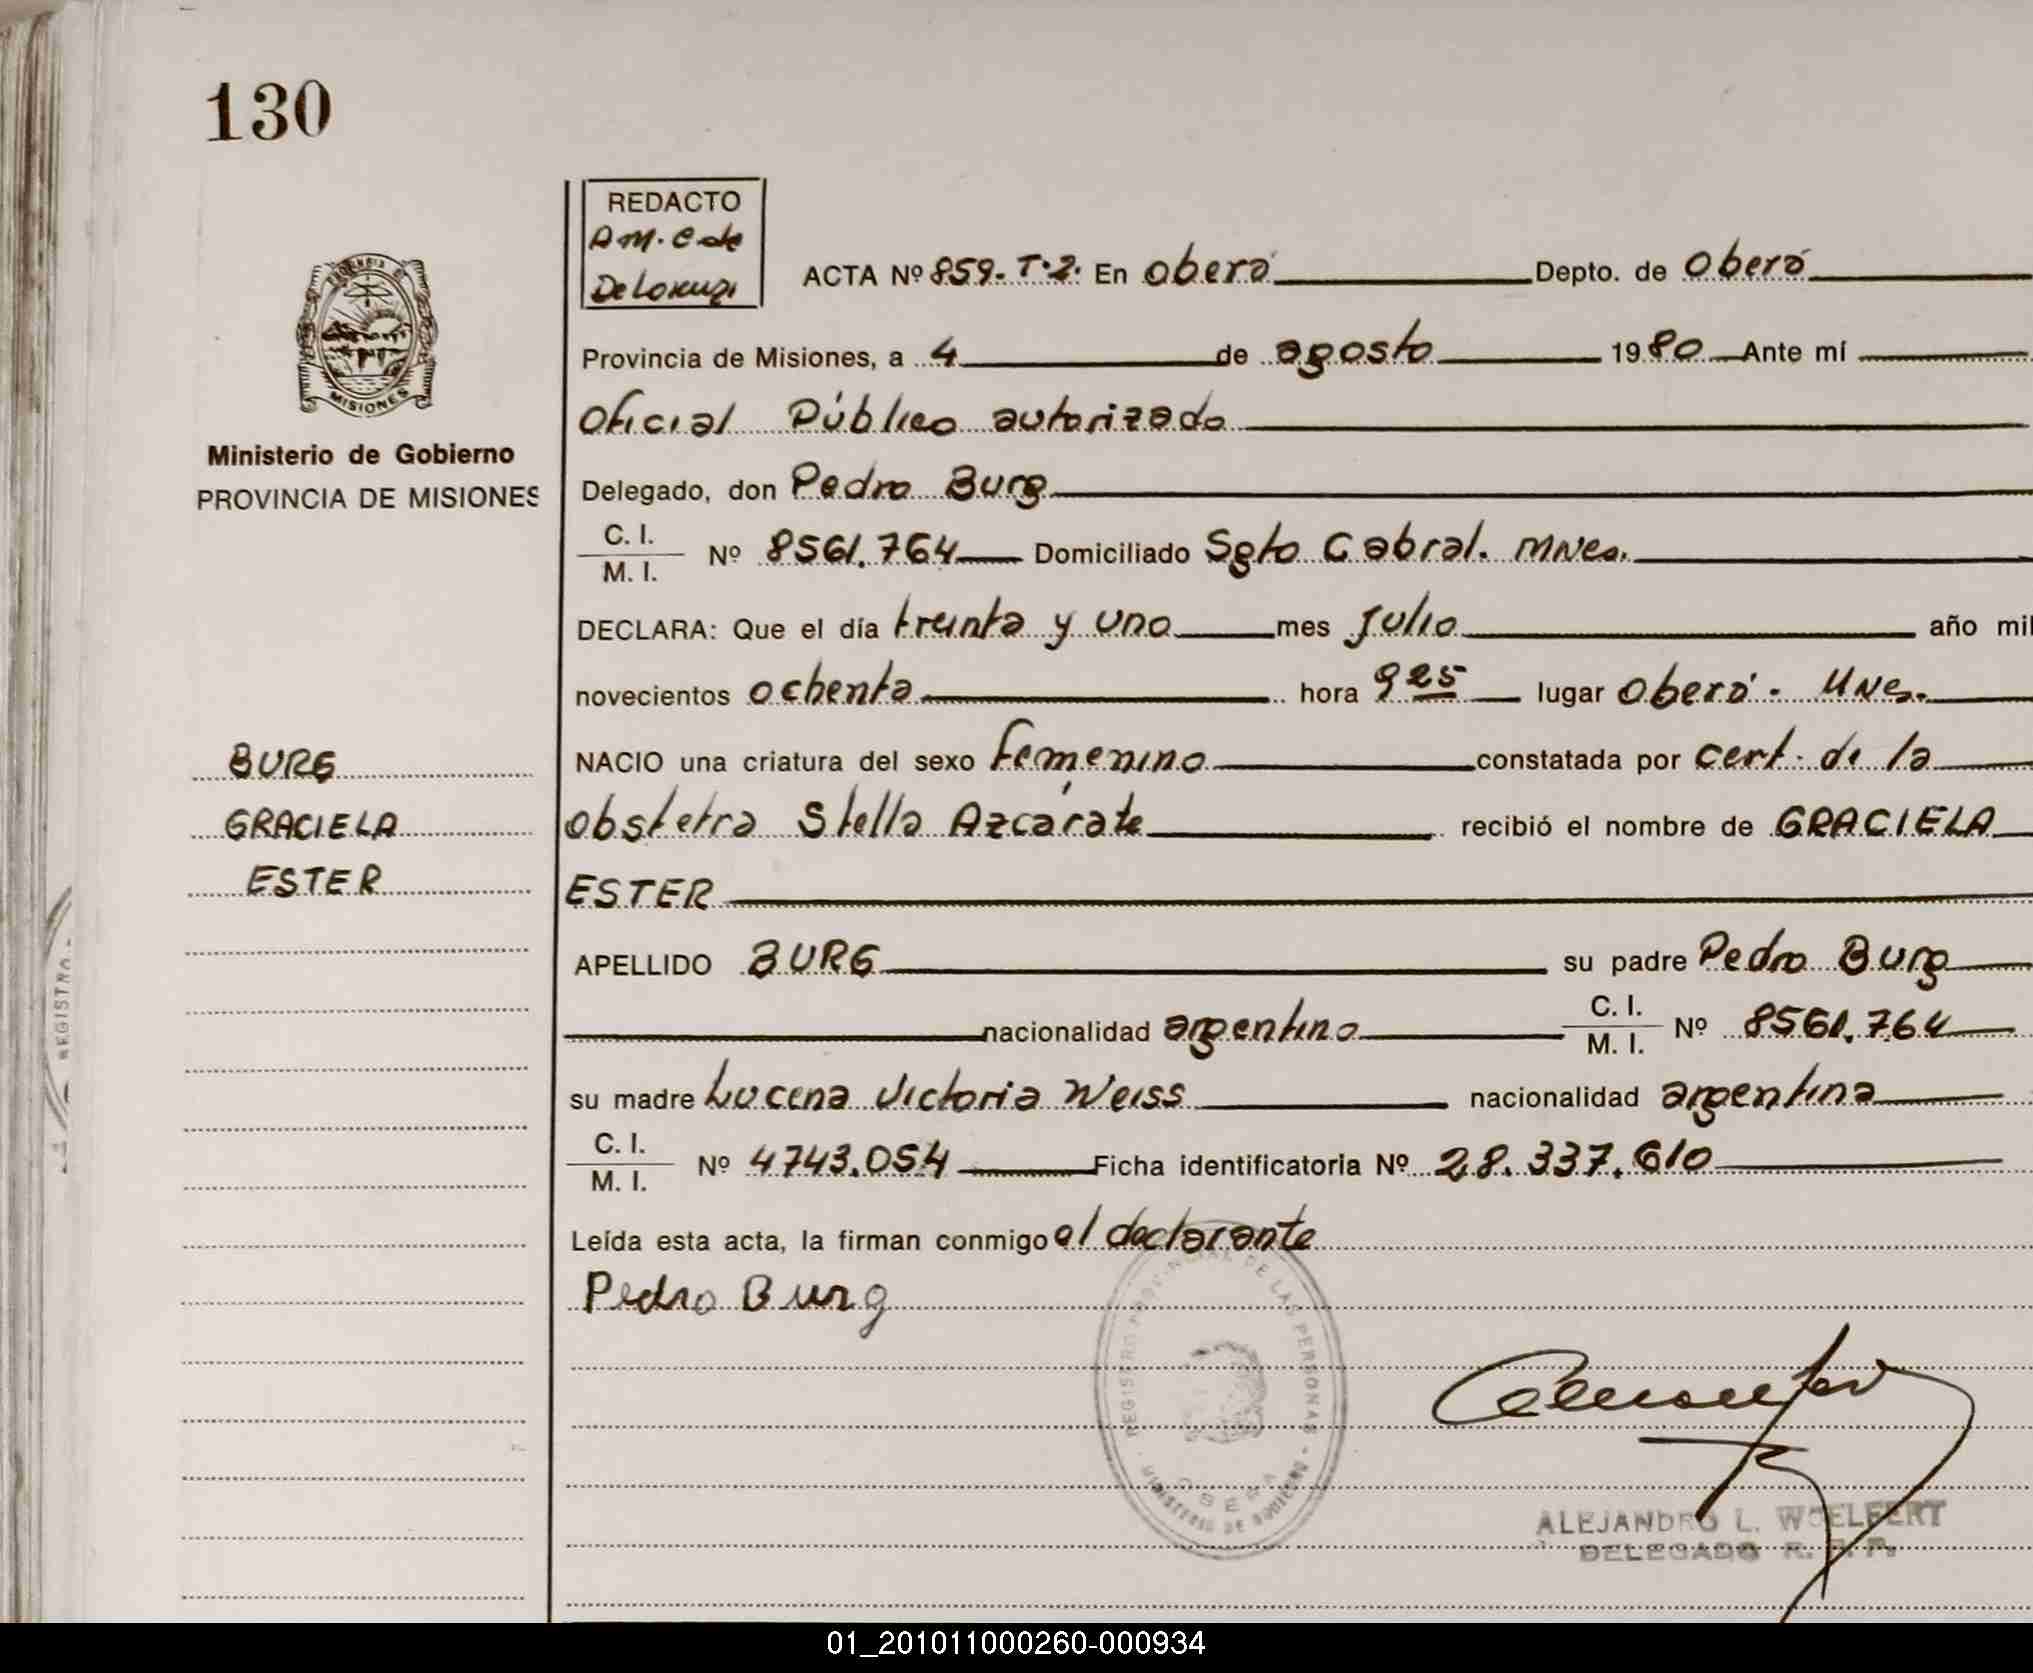 130
REDACTO
A M. C de
De Lorenzi
ACTA Nº 859. T.2. En Oberá Depto. de Oberá
Provincia de Misiones, a 4 de agosto 1980 Ante mí
Oficial Público autorizado
MISIONES
Ministerio de Gobierno
PROVINCIA DE MISIONES
Delegado, don Pedro Burg
C. I.
M. I. Nº 8561.764 Domiciliado Sgto Cabral. Mnes.
DECLARA: Que el día treinta y uno mes Julio año mil
novecientos ochenta hora 9 25 lugar Oberá. Mnes.
NACIO una criatura del sexo femenino constatada por cert. de la
obstetra Stella Azcárate recibió el nombre de GRACIELA
ESTER
BURG
GRACIELA
ESTER
APELLIDO BURG su padre Pedro Burg
nacionalidad argentino C. I.
M. I. Nº 8561.764
su madre Lucena Victoria Weiss nacionalidad argentina
C. I.
M. I. Nº 4743.054 Ficha identificatoria Nº 28.337.610
Leída esta acta, la firman conmigo el declarante
Pedro Burg
REGISTRO PROVINCIAL DE LAS PERSONAS
MINISTERIO DE GOBIERNO
OBERA
ALEJANDRO L. WOELFERT
DELEGADO R. P. P.
01_201011000260-000934